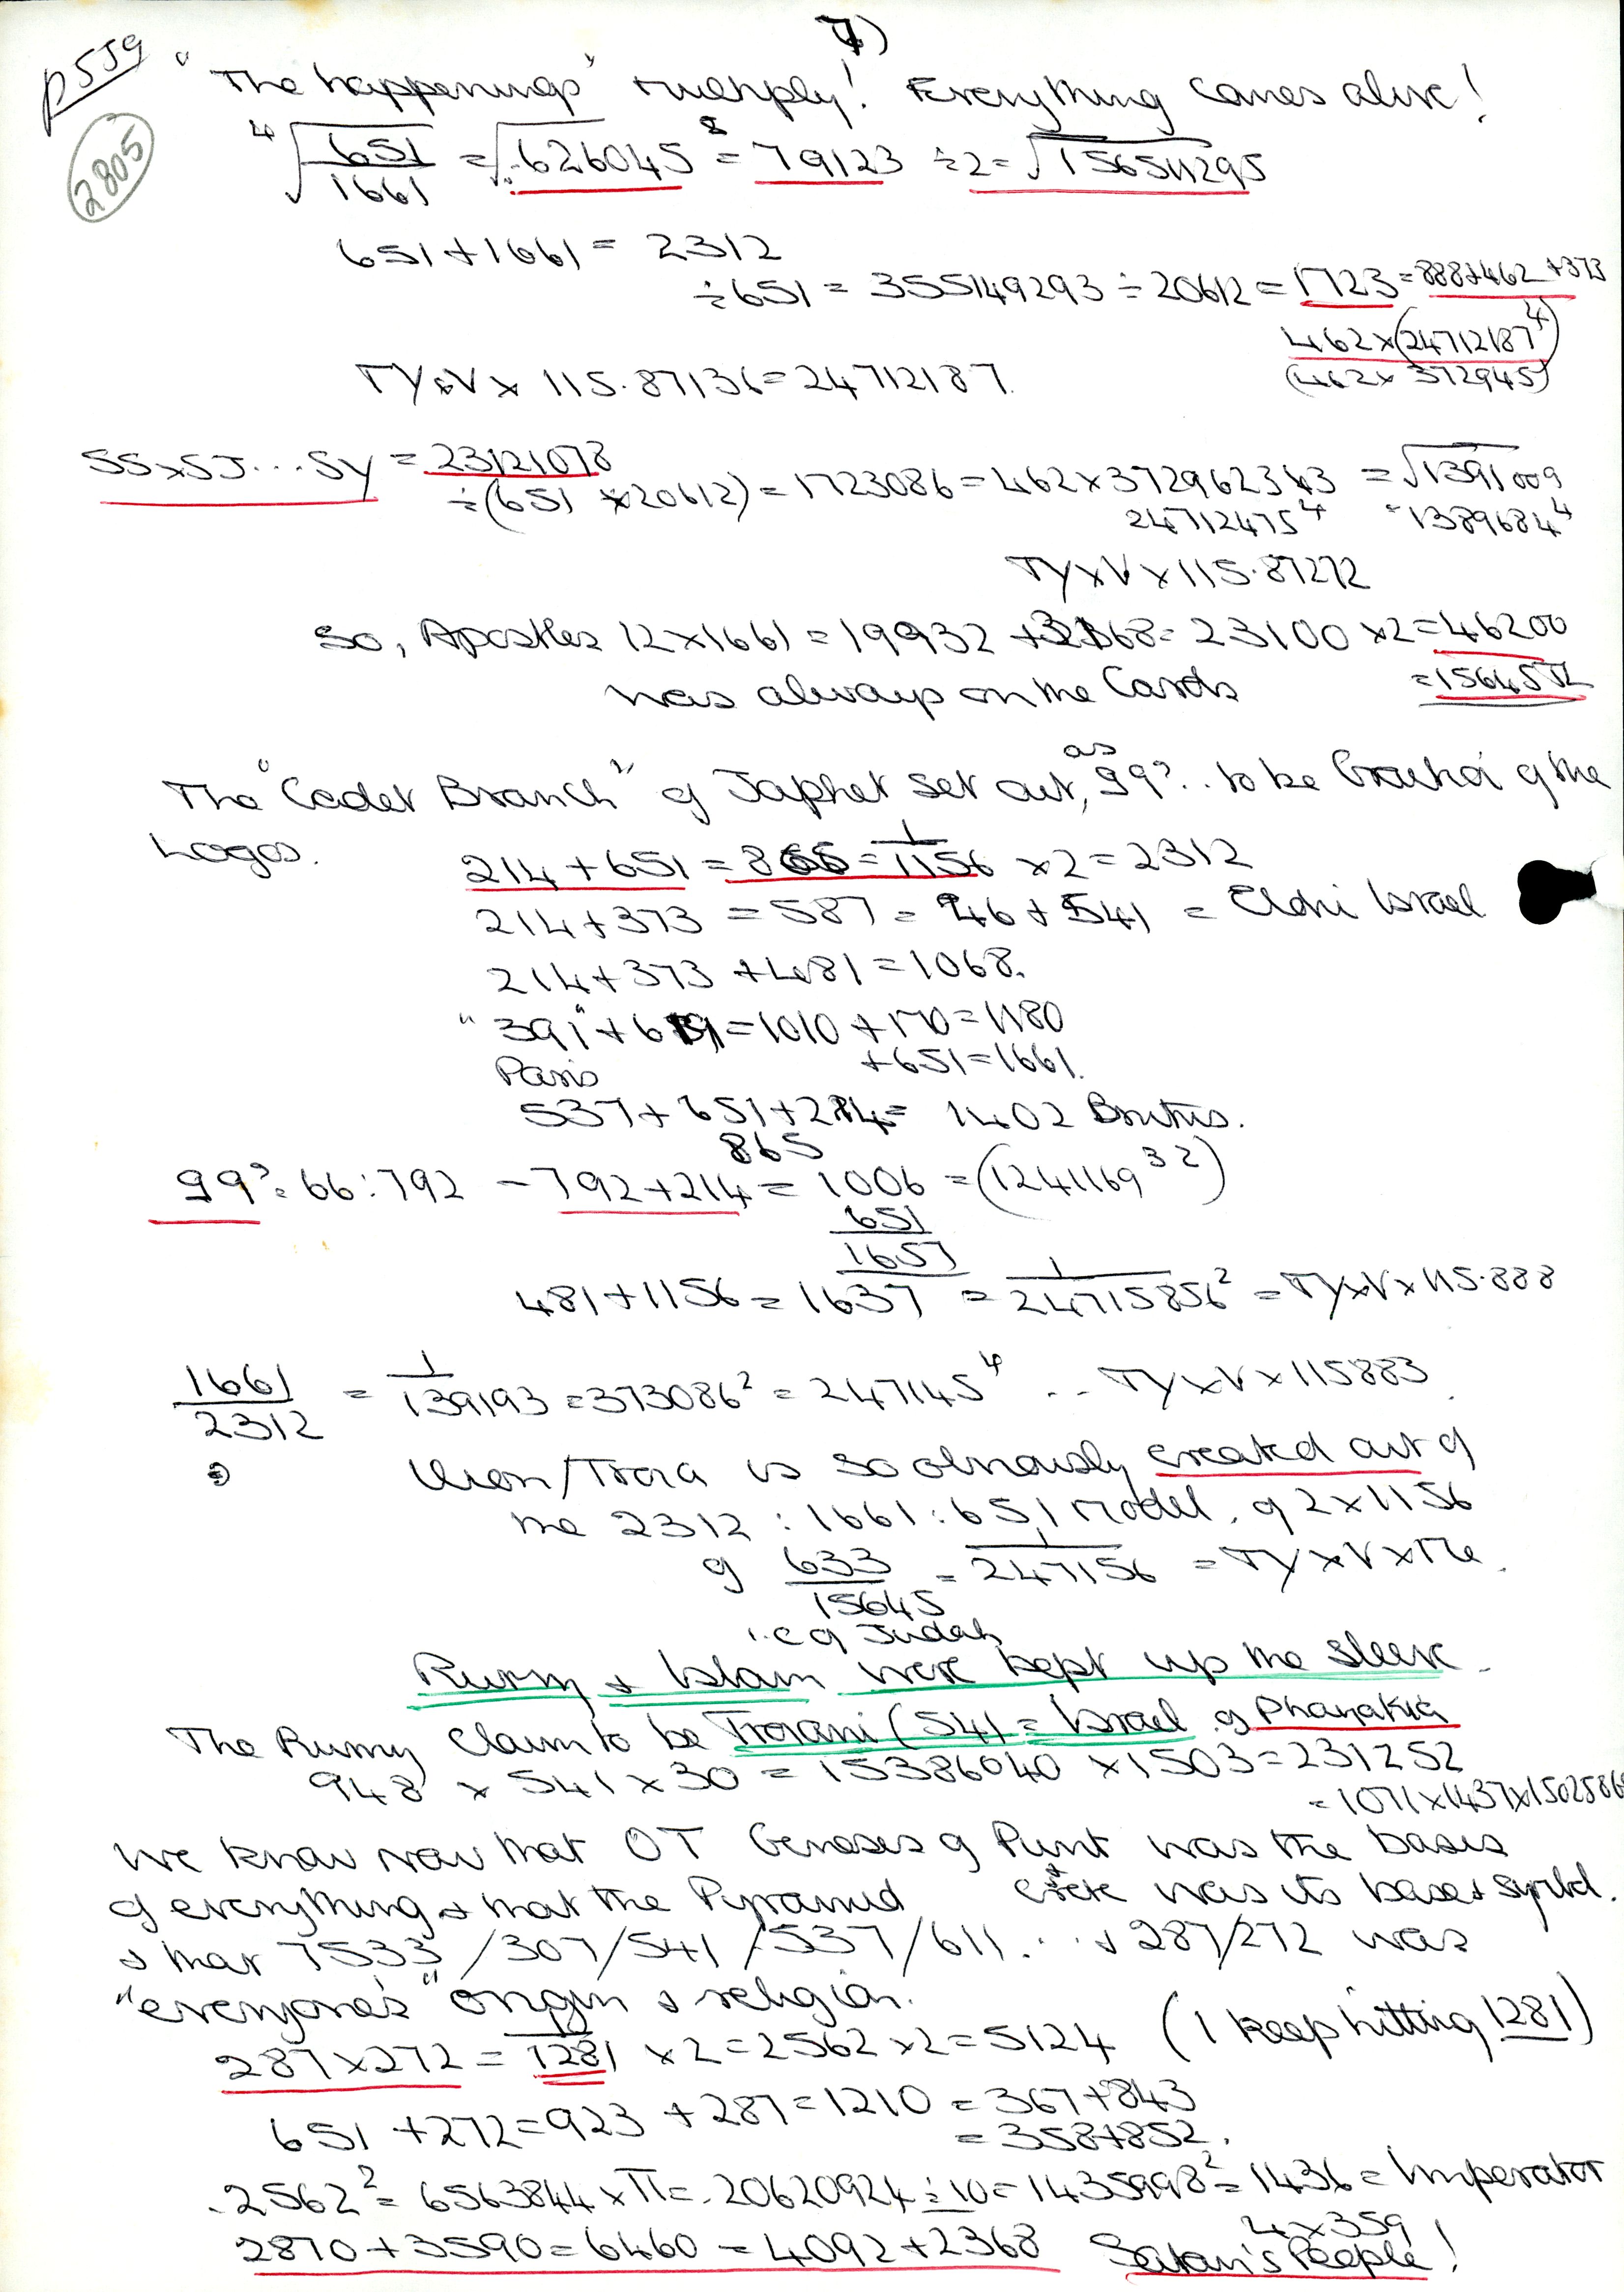 7)
p559
2805
"The happenings" multiply! Everything comes alive!
4√651/1661 = √.626045 = 79123 ÷2 = √156511295
651+1661 = 2312
÷651 = 355149293 ÷ 20612 = 1723 = 888+462+373
462×(24712187⁴)
(462× 372945)
TY×V× 115.87136=24712187.
SS×SJ...SY = 23121078
÷(651 ×20612) = 1723086 = 462×372962343 = √1391009
24712475⁴ 1389684⁴
TY×V×115.87272
So, Apostles 12×1661 = 19932 +3168= 23100 ×2=46200
was always on the Cards =15645
The "Cadet Branch" of Japhet set out, as 99?.. to be of the
Logos.
214+651 = 865 = 1/1156 ×2=2312
214+373 = 587 = 46+541 = Israel
214+373 +481=1068.
"391"+619=1010+170=1180
Paris +651=1661.
537+651+214= 1402 Brutus.
865
99?: 66:792 - 792+214 = 1006 = (1241169³²)
651
1657
481+1156 = 1637 = 1/24715856² = TY×V×115.888
1661/2312 = 1/139193 = 373086² = 247145⁴ .. TY×V×115883.
/Troia is so obviously created out of
the 2312:1661:651 model. of 2×1156
of 633/15645 = 1/247156 = TY×V×
i.e of Judah
& Islam were kept up the sleeve.
The claim to be Troiani (541 = Israel of
948 × 541×30 = 15386040 ×1503=231252
=1071×1437×
We know now that OT Geneses of Punt was the basis
of everything & that the Pyramid was its base & symbol.
& that 7533/307/541/537/611... & 287/272 was
"everyone's" origin & religion.
287×272 = 1/1281 ×2=2562×2=5124 (I keep hitting 1281)
651+272=923+287=1210 = 367+843
= 358+852.
.2562² = 6563844×π=.20620924÷10=1435998²=1436=Imperator
4×359
2870+3590=6460 = 4092+2368 Satan's People!